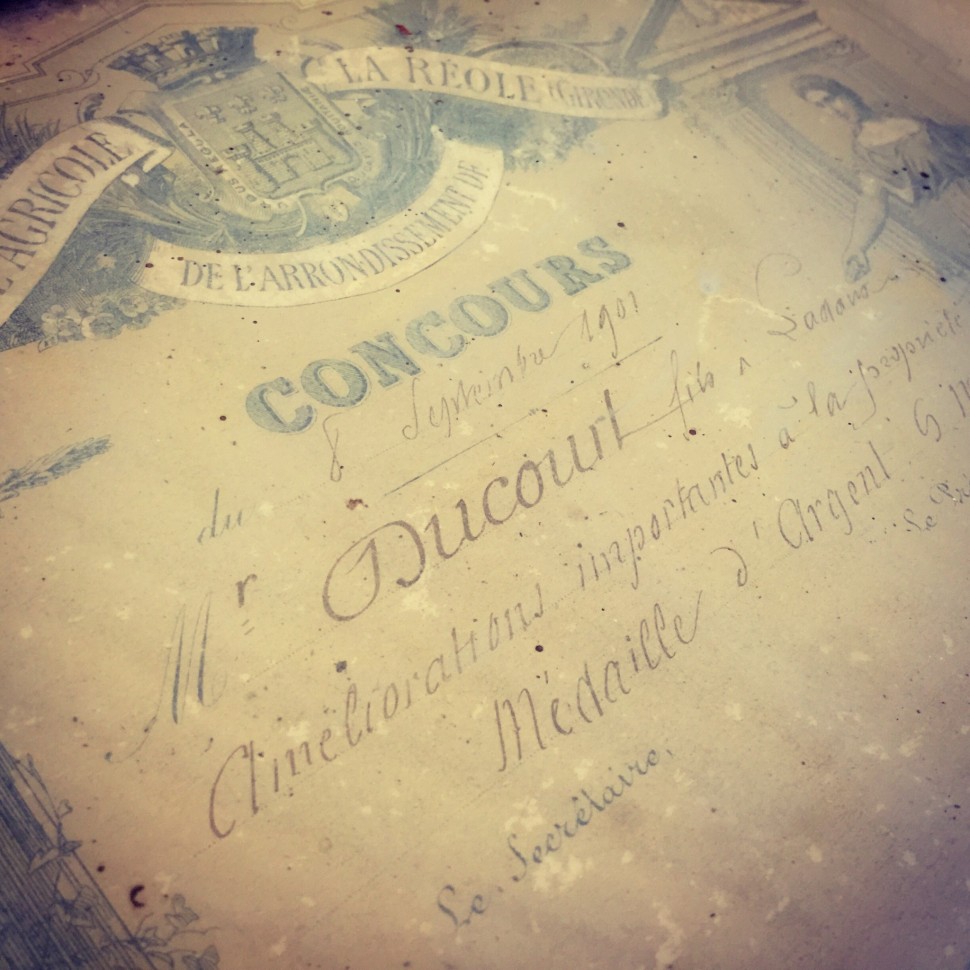 AGRICOLE
DE L'ARRONDISSEMENT DE
LA RÉOLE (GIRONDE)
CONCOURS
du 8 Septembre 1901
Mr Ducourt fils à
Améliorations importantes à la propriété
Médaille d'Argent
Le Secrétaire,